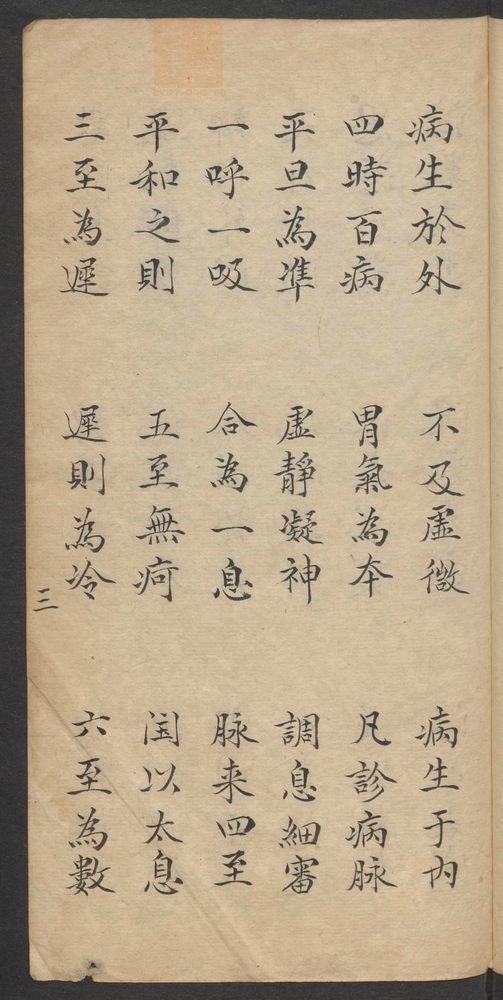 病生於外 不及虛微 病生于內
四時百病 胃氣為本 凡診病脉
平旦為準 虛靜凝神 調息細審
一呼一吸 合為一息 脉来四至
平和之則 五至無疴 闰以太息
三至為遲 遲則為冷 六至為數
三